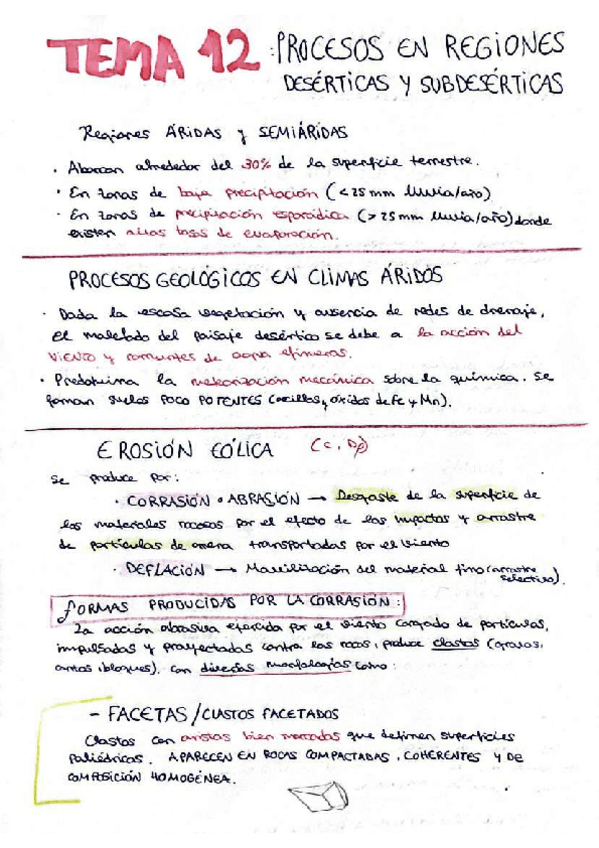 TEMA 12: PROCESOS EN REGIONES
DESÉRTICAS Y SUBDESÉRTICAS
Regiones ÁRIDAS y SEMIÁRIDAS
· Abarcan alrededor del 30% de la superficie terrestre.
· En zonas de baja precipitación (<25 mm lluvia/año)
· En zonas de precipitación esporádica (>25 mm lluvia/año) donde
existen altas tasas de evaporación.
PROCESOS GEOLÓGICOS EN CLIMAS ÁRIDOS
· Dada la escasa vegetación y ausencia de redes de drenaje,
el modelado del paisaje desértico se debe a la acción del
VIENTO y corrientes de agua efímeras.
· Predomina la meteorización mecánica sobre la química. Se
forman suelos POCO POTENTES (arcillas y óxidos de Fe y Mn).
EROSIÓN EÓLICA (C, D)
Se produce por:
· CORRASIÓN o ABRASIÓN → Desgaste de la superficie de
los materiales rocosos por el efecto de los impactos y arrastre
de partículas de arena transportadas por el viento
· DEFLACIÓN → Movilización del material fino (arrastre
selectivo).
FORMAS PRODUCIDAS POR LA CORRASIÓN:
La acción abrasiva ejercida por el viento cargado de partículas,
impulsadas y proyectadas contra las rocas, produce clastos (gravas,
cantos, bloques), con diversas morfologías como:
- FACETAS/CLASTOS FACETADOS
Clastos con aristas bien marcadas que definen superficies
poliédricas. APARECEN EN ROCAS COMPACTADAS, COHERENTES Y DE
COMPOSICIÓN HOMOGÉNEA.